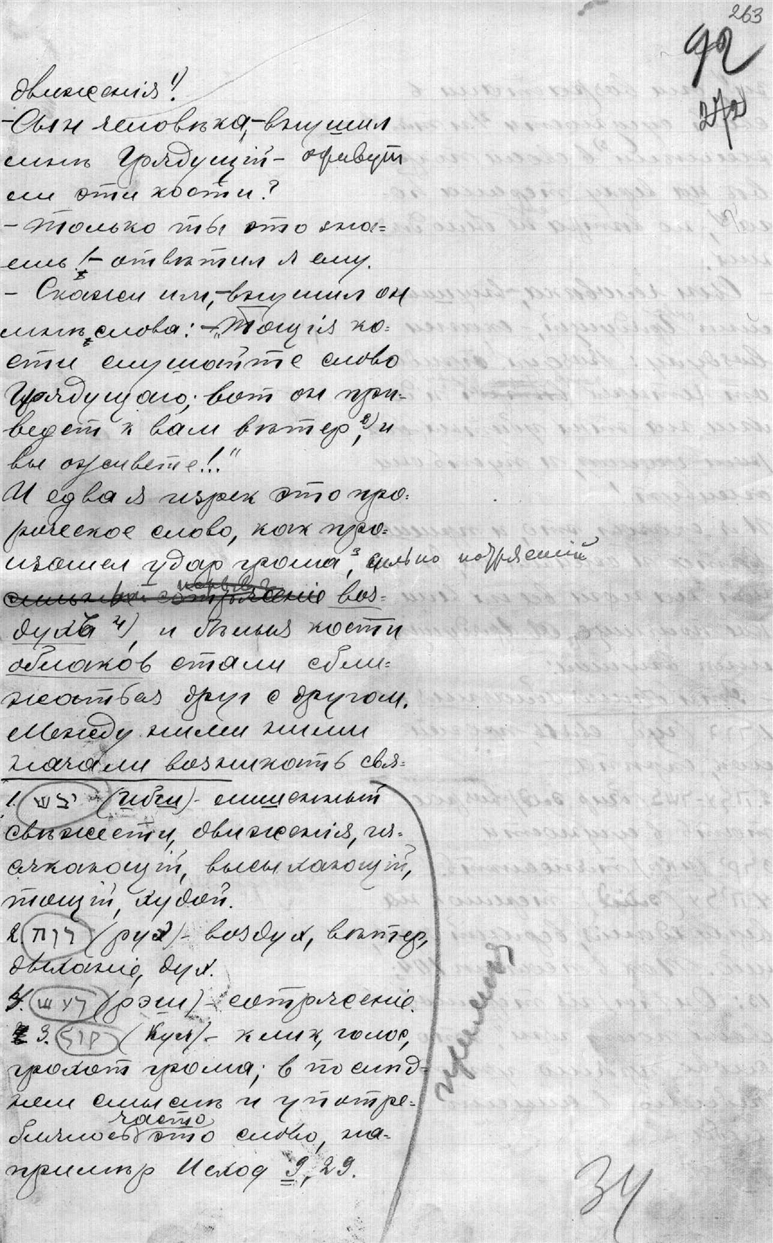 263
92
272
движенія!¹⁾
– Сын человѣка, – внушил
мнѣ Грядущій – оживут
ли эти кости?
– Только ты это зна=
ешь! – отвѣтил я ему.
– Скажи им, – внушил он
мнѣ слова: – „Тощія ко=
сти слушайте слово
Грядущаго; вот он при=
ведет к вам вѣтер²⁾, и
вы оживете!!“
И едва я изрек это про=
роческое слово, как про=
изошел удар грома³, сильно потрясшій
воз=
духъ ⁴⁾, и бѣлыя кости
облаков стали сбли=
жаться друг с другом.
Между ними ними
начали возникать свя=
1. יבש (ибш) – лишенный
свѣжести, движенія, из=
сякающій, высыхающій,
тощій, худой.
2. רוח (рух) – воздух, вѣтер,
дыханіе, дух.
4. רעש (рэш) – сотрясеніе.
3. קול (кул) – клик, голос,
грохот грома; в послѣд=
нем смыслѣ и употре=
блялось часто это слово, на=
примѣр Исход 9, 29.
34